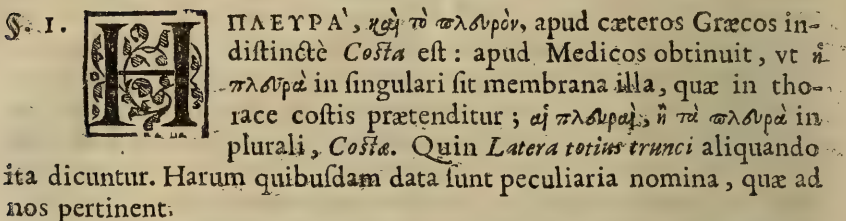 §. I. H ΠΛΕΥΡΑ`, καὶ τὸ πλευρὸν, apud cæteros Græcos in-
diſtinctè Coſta eſt : apud Medicos obtinuit, vt ἡ
πλευρὰ in ſingulari ſit membrana illa, quæ in tho-
race coſtis prætenditur ; αἱ πλευραὶ, ἢ τὰ πλευρὰ in
plurali, Coſtæ. Quin Latera totius trunci aliquando
ita dicuntur. Harum quibuſdam data ſunt peculiaria nomina, quæ ad
nos pertinent.